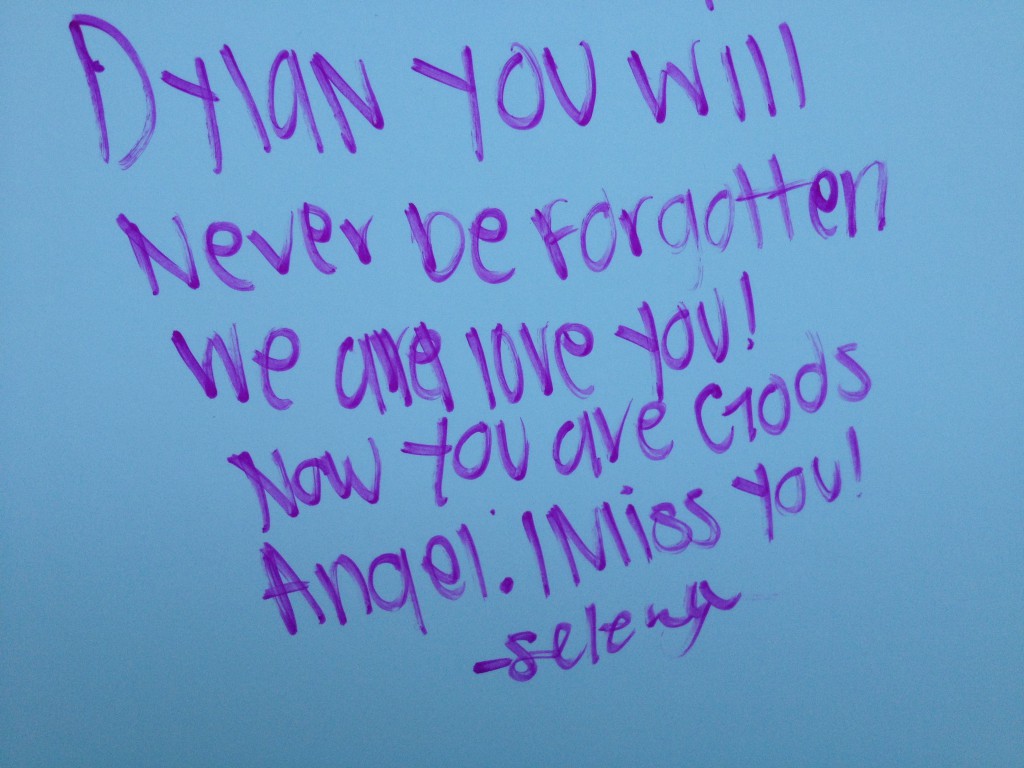 Dylan you will
Never be Forgotten
We love you!
Now you are Gods
Angel. I Miss you!
-selena